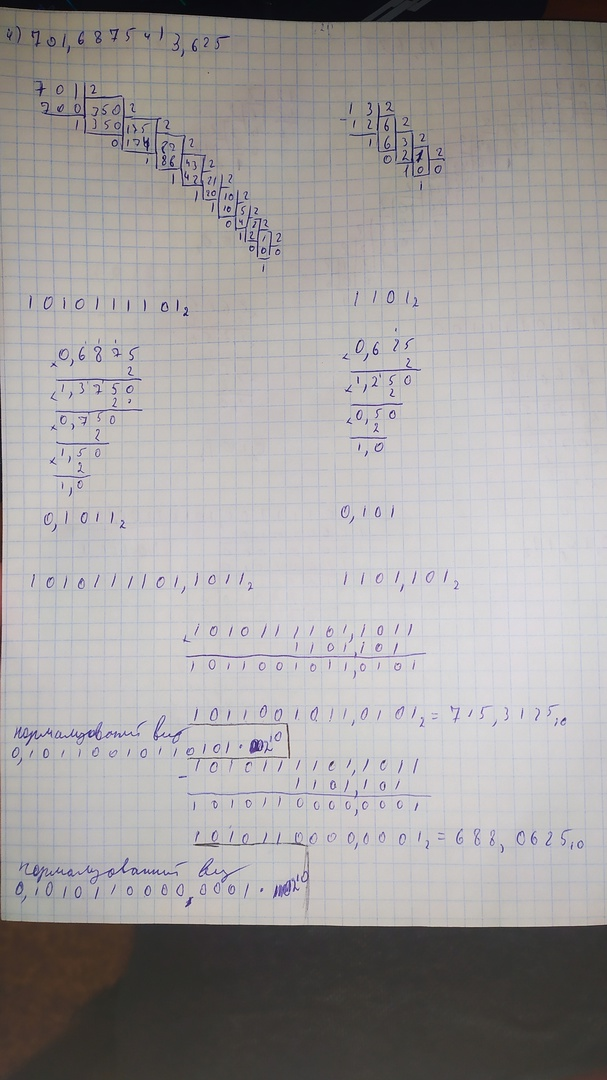 4) 701,6875 и 13,625
7 0 1 2
7 0 0 350 2
1 350 175 2
0 174 87 2
1 86 43 2
1 42 21 2
1 20 10 2
1 10 5 2
0 4 2 2
1 2 1 2
0 0 0
1
1 3 2
- 1 2 6 2
1 6 3 2
0 2 1 2
1 0 0
1
1010111101₂
1101₂
0,6875
2
1,3750
2
0,750
2
1,50
2
1,0
0,1011₂
0,625
2
1,250
2
0,50
2
1,0
0,101
1010111101,1011₂
1101,101₂
1010111101,1011
1101,101
1011001011,0101
1011001011,0101₂ = 715,3125₁₀
нормалзований вид
0,10110010110101 · 2¹⁰
- 1010111101,1011
1101,101
1010110000,0001
1010110000,0001₂ = 688,0625₁₀
нормалзований вид
0,1010110000,0001 · 2¹⁰